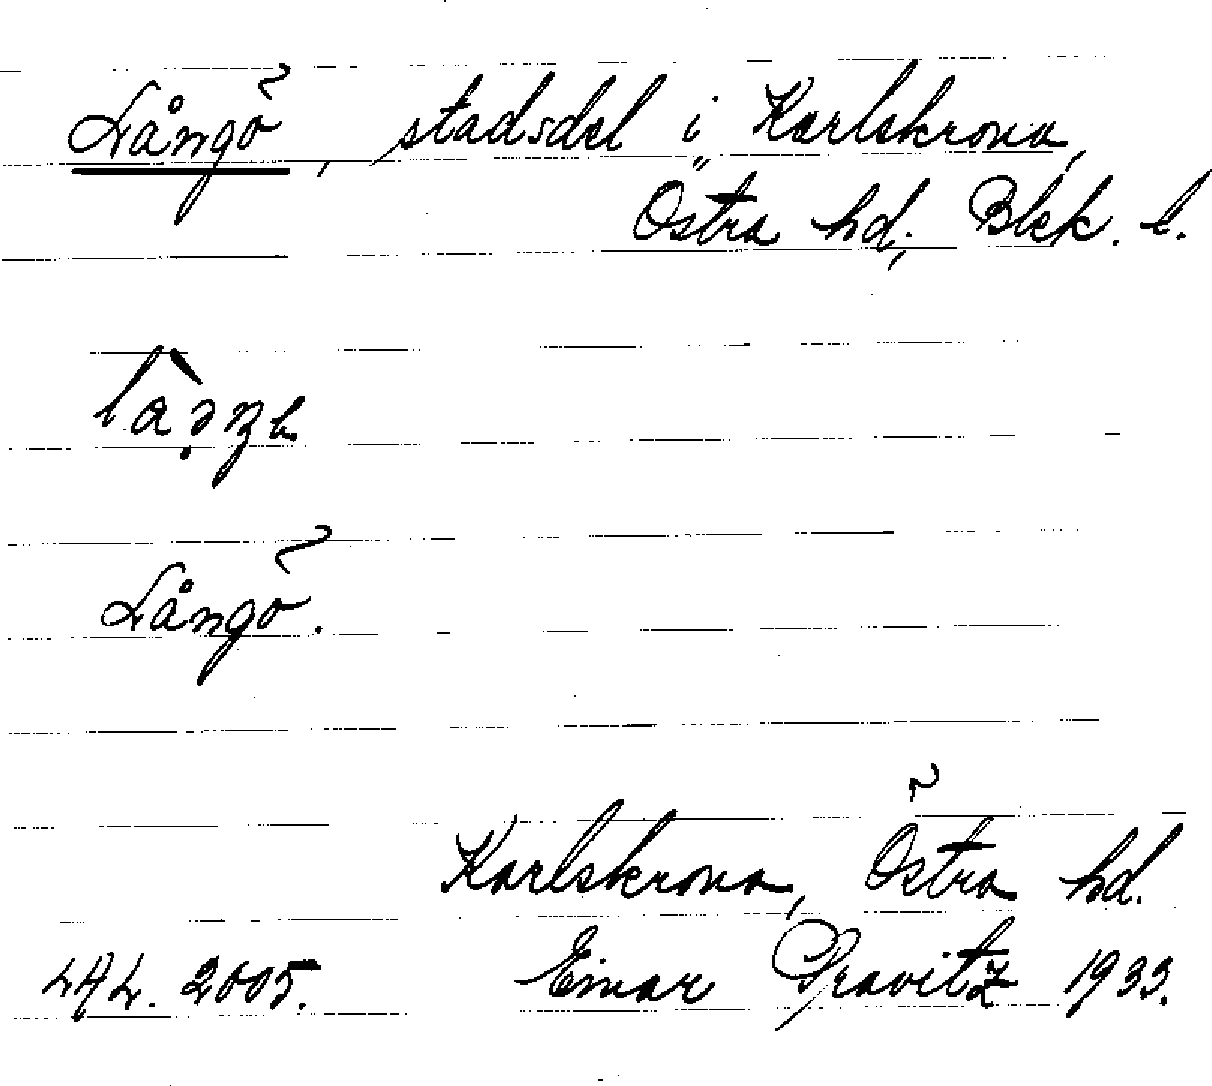 Långö, stadsdel i Karlskrona,
Östra hd, Blek. l.
Långö.
Karlskrona, Östra hd.
2005. Einar Gravitz 1933.